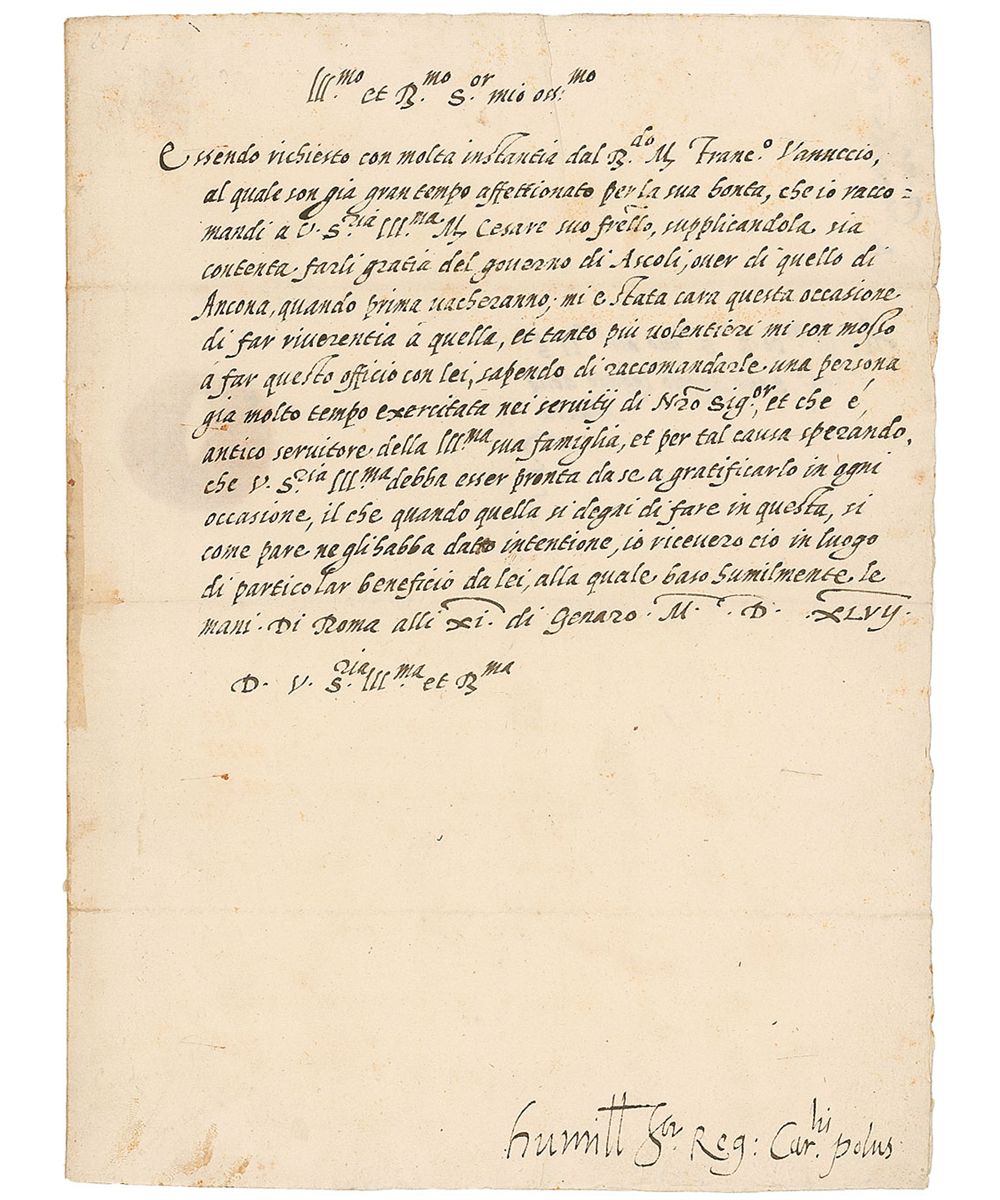 Ill.mo et R.mo S.or mio oss.mo
Essendo richiesto con molta instantia dal R.do M. Franc.o Vanuccio,
al quale son gia gran tempo affettionato per la sua bonta, che io racco=
mandi a V. S.ria Ill.ma M. Cesare suo frello, supplicandola sia
contenta farli gratia del governo di Ascoli, over di quello di
Ancona, quando prima vacheranno; mi e stata cara questa occasione
di far riverentia à quella, et tanto più volentieri mi son mosso
a far questo officio con lei, sapendo di raccomandarle una persona
già molto tempo exercitata nei servitij di Nr̃o Sig.or, et che é,
antico servitore della Ill.ma sua famiglia, et per tal causa sperando,
che V. S.ria Ill.ma debba esser pronta da se a gratificarlo in ogni
occasione, il che quando quella si degni di fare in questa, si
come pare ne gli habba dato intentione, io ricevero cio in luogo
di particolar beneficio da lei, alla quale baso humilmente le
mani. Di Roma alli xi. di Genaro. M. D. XLVIJ.
D. V. S.ria Ill.ma et R.ma
humill S.or Reg: Car.lis polus